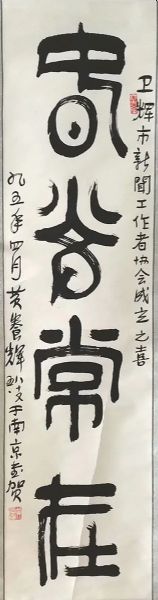 卫辉市新闻工作者协会成立之喜
春常在
九五年四月黄养辉于南京画贺